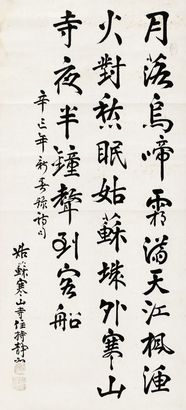 月落烏啼霜滿天江楓漁
火對愁眠姑蘇城外寒山
寺夜半鐘聲到客船
辛巳年新春錄詩句
姑蘇寒山寺住持靜如